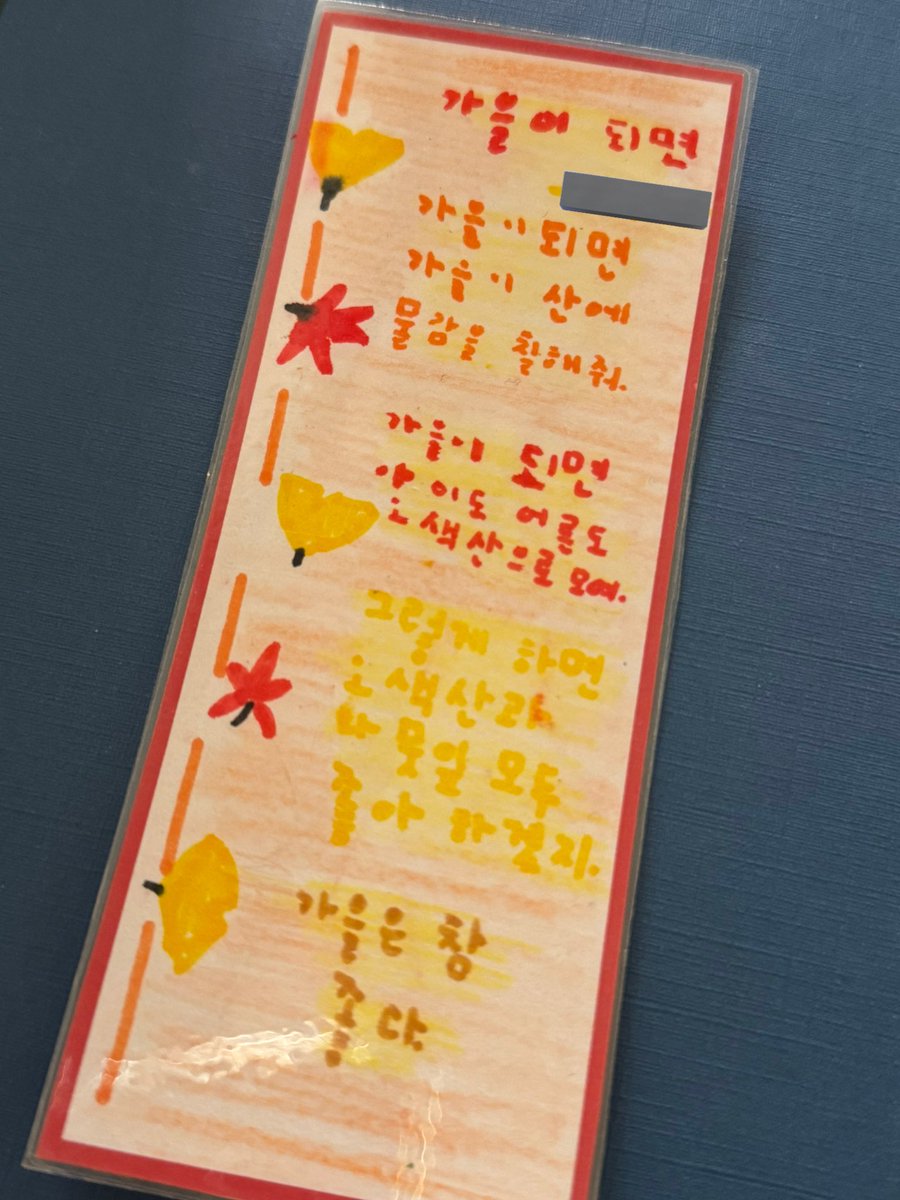 가을이 되면
가을이 되면
가을이 산에
물감을 칠해줘.
가을이 되면
아이도 어른도
오색산으로 모여.
그렇게 하면
오색산과
나뭇잎 모두
좋아 하겠지.
가을은 참
좋다